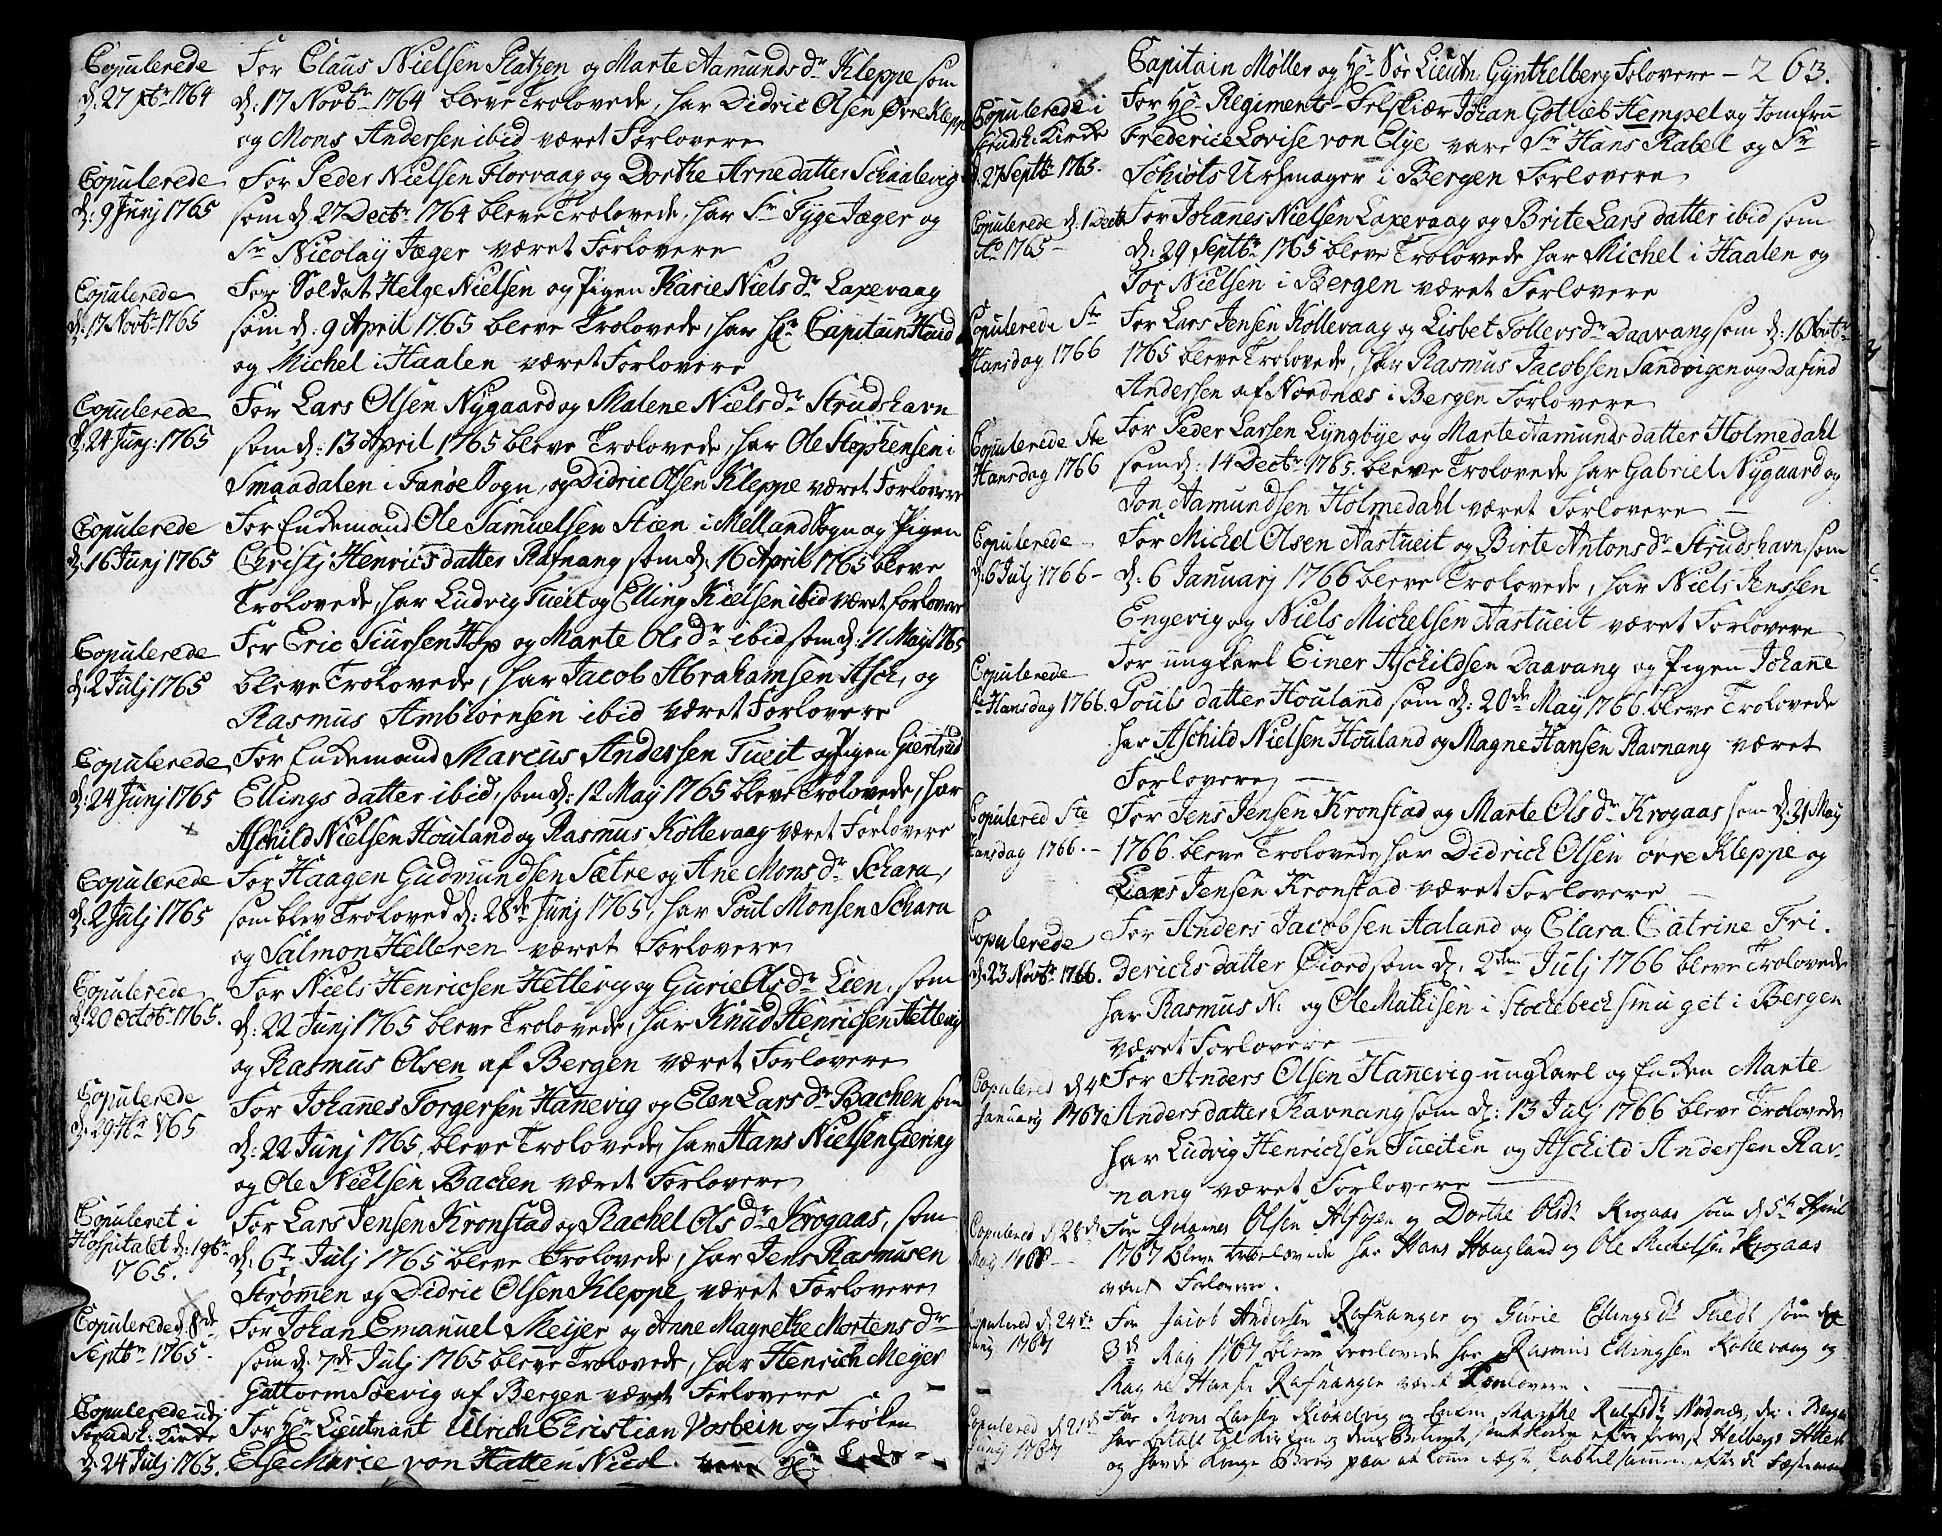 Copulerede
d: 27 xbr 1764
For Claus Nielsen Platzen og Marte Aamunds dr Kleppe som
d: 17 Novbr 1764 bleve Trolovede, har Didric Olsen Øvre Kleppe
og Mons Andersen ibid været Forlovere
Copulerede
d: 9 Junj 1765
For Peder Nielsen Florvaag og Dorthe Arnedatter Schaalevig
som d 27 Decbr 1764 bleve Trolovede, har Sr Tyge Jæger og
Sr Nicolaij Jæger været Forlovere
Copulerede
d: 17 Novbr 1765
For Soldat Helge Nielsen og Pigen Karie Niels dr Laxevaag
som d: 9 April 1765 bleve Trolovede, har Hr Capitain
og Michel i Haalen været Forlovere
Copulerede
d: 24 Junj: 1765
For Lars Olsen Nygaard og Malene Niels dr Strudshavn
som d: 13 April 1765 bleve Trolovede, har Ole Stephensen i
Smaadalen i Fanøe Sogn, og Didric Olsen Kleppe været Forlovere
Copulerede
d: 16 Junj 1765
For Enckemand Ole Samuelsen Steen i Melland Sogn og Pigen
Christj Henricsdatter Rafnang som d: 16 April 1765 bleve
Trolovede, har Ludvig Tueit og Elling Nielsen ibid været forlovere
Copulerede
d: 2 Julj 1765
For Eric Siursen Hop og Marte Ols dr ibid som d: 11 May 1765
bleve Trolovede, har Jacob Abrahamsen Asch, og
Rasmus Ambiørnsen ibid været Forlovere
Copulerede
d: 24 Junj 1765
For Enckemand Marcus Andersen Tueit og Pigen Giertrud
Ellings datter ibid, som d: 12 May 1765 bleve Trolovede, har
Aschild Nielsen Houland og Rasmus Kollevaag været Forlovere
Copulerede
d: 2 Julj 1765
For Haagen Gudmundsen Sætre og Ane Mons dr Schara,
som blev Troloved d: 28de Junj 1765, har Poul Monsen Schara
og Salmon Helleren været Forlovere
Copulerede
d: 20 Octobr 1765.
For Niels Henricsen Hettevig og Gurie Ols dr Lien, som
d: 22 Junj 1765 bleve Trolovede, har Knud Henricsen Hettevig
og Rasmus Olsen af Bergen været Forlovere
Copulerede
d: 29 1765
For Johanes Torgersen Hanevig og Elen Lars dr Bachen som
d: 22 Junj 1765, bleve Trolovede, har Hans Nielsen Giering
og Ole Nielsen Bachen været Forlovere
Copuleret i
Hospitalet d: 1 9br
1765.
For Lars Jensen Kronstad og Rachel Ols dr Krogaas, som
d: 6te Julj 1765 bleve Trolovede, har Jens Rasmusen
Strømen og Didric Olsen Kleppe, været Forlovere
Copulerede d. 8de
Septbr 1765.
For Johan Emanuel Meijer og Anne Magrethe Mortens dr
som d: 7de Julj 1765 bleve Trolovede, har Henrich Meyer
Guttorm Søevig af Bergen været Forlovere
Copulerede udj
Strudsh: Kirke
d: 24 Julj 1765.
For Hr Lieutnant Ulrich Christian Vosbein og Frøken
Else Marie von Hatten Nicol. vare Hr
263.
Capitain Møller og Hr Sec Lieutn: Gÿntelberg Folovere
Copulerede i
Strudsh: Kirke
d. 27 Septbr 1765.
For Hr Regiments-Felskiær Johan Gotlieb Hempel og Jomfru
Frederice Lovise von Elye vare Sr Hans Rabel og Sr
Schiøts Urhmager i Bergen Forlovere
Copulerede d. 1 Decbr
Ao 1765
For Johanes Nielsen Laxevaag og Brite Lars datter ibid som
d: 29 Septbr 1765 bleve Trolovede har Michel i Haalen og
Tor Nielsen i Bergen været Forlovere
Copulerede Ste
Hansdag 1766
For Lars Jensen Kollevaag og Lisbet Tollevs dr Daavang som d: 16 Novbr
1765 bleve Trolovede, har Rasmus Jacobsen Sandvigen og Dafind
Andersen af Nordnæs i Bergen Forlovere
Copulerede Ste
Hansdag 1766
For Peder Larsen Lyngbye og Marte Aamunds datter Holmedahl
som d: 14 Decbr 1765 bleve Trolovede har Gabriel Nygaard og
Jon Aamundsen Holmedahl været Forlovere
Copulerede
d: 6 Julj 1766
For Michel Olsen Aastueit og Birte Antons dr Strudshavn, som
d: 6 Januarj 1766 bleve Trolovede, har Niels Jensen
Engevig og Niels Michelsen Aastueit været Forlovere
Copulerede
St Hansdag 1766.
For ungkarl Einer Aschildsen Daavang og Pigen Johane
Pouls datter Houland som d: 20de May 1766 bleve Trolovede
har Aschild Nielsen Houland og Magne Hansen Ravnang været
Forlovere
Copulered Ste
Hansdag 1766.
For Jens Jensen Kronstad og Marte Ols dr Krogaas som d: 21 May
1766 bleve Trolovede, har Didrich Olsen ovre Kleppe og
Lars Jensen Kronstad været Forlovere
Copulerede
d: 23 Novbr 1766.
For Anders Jacobsen Aaland og Clara Catrine Fri-
derichs datter Øiord som d: 2den Julj 1766 bleve Trolovede
har Rasmus N: og Ole Mathisen i Stockebech smuget i Bergen
været Forlovere
Copulered d 4
Januarij 1767
For Anders Olsen Hanevig ungkarl og Encken Marte
Andersdatter Ravnang som d: 13 Julj 1766 bleve Trolovede
har Ludvig Henrichsen Tueiten og Aschild Andersen Rav-
nang været Forlovere
Copulered d 28de
Maij
For Johannes Olsen Alføen og Dorthe Olsdr Krogaas som d 5te April
1767 bleve trolovede har Hans Hougland og Ole Michelsen Krogaas
været Forlovere.
Copulered d 24de
Junj 1767
For Jacob Andersen Rafnanger og Gurie Ellings dr Tuedt som
3de May 1767 bleve trolovede har Rasmus Ellingsen Kollevaag og
Magne Hansen Rafnanger været Forlovere.
Copulered d 21de
Junij 1767
For Mons Larsen og Encken Marthe Nordnæs, der i Bergen
har betalt til Kirken og
og havde Konge Brev paa at komme i